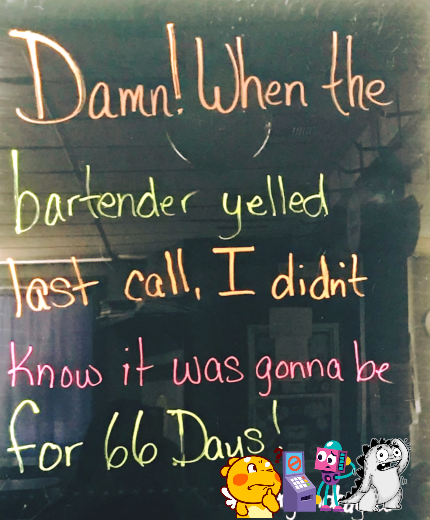 Damn! When the
bartender yelled
last call, I didn't
Know it was gonna be
for 66 Days!